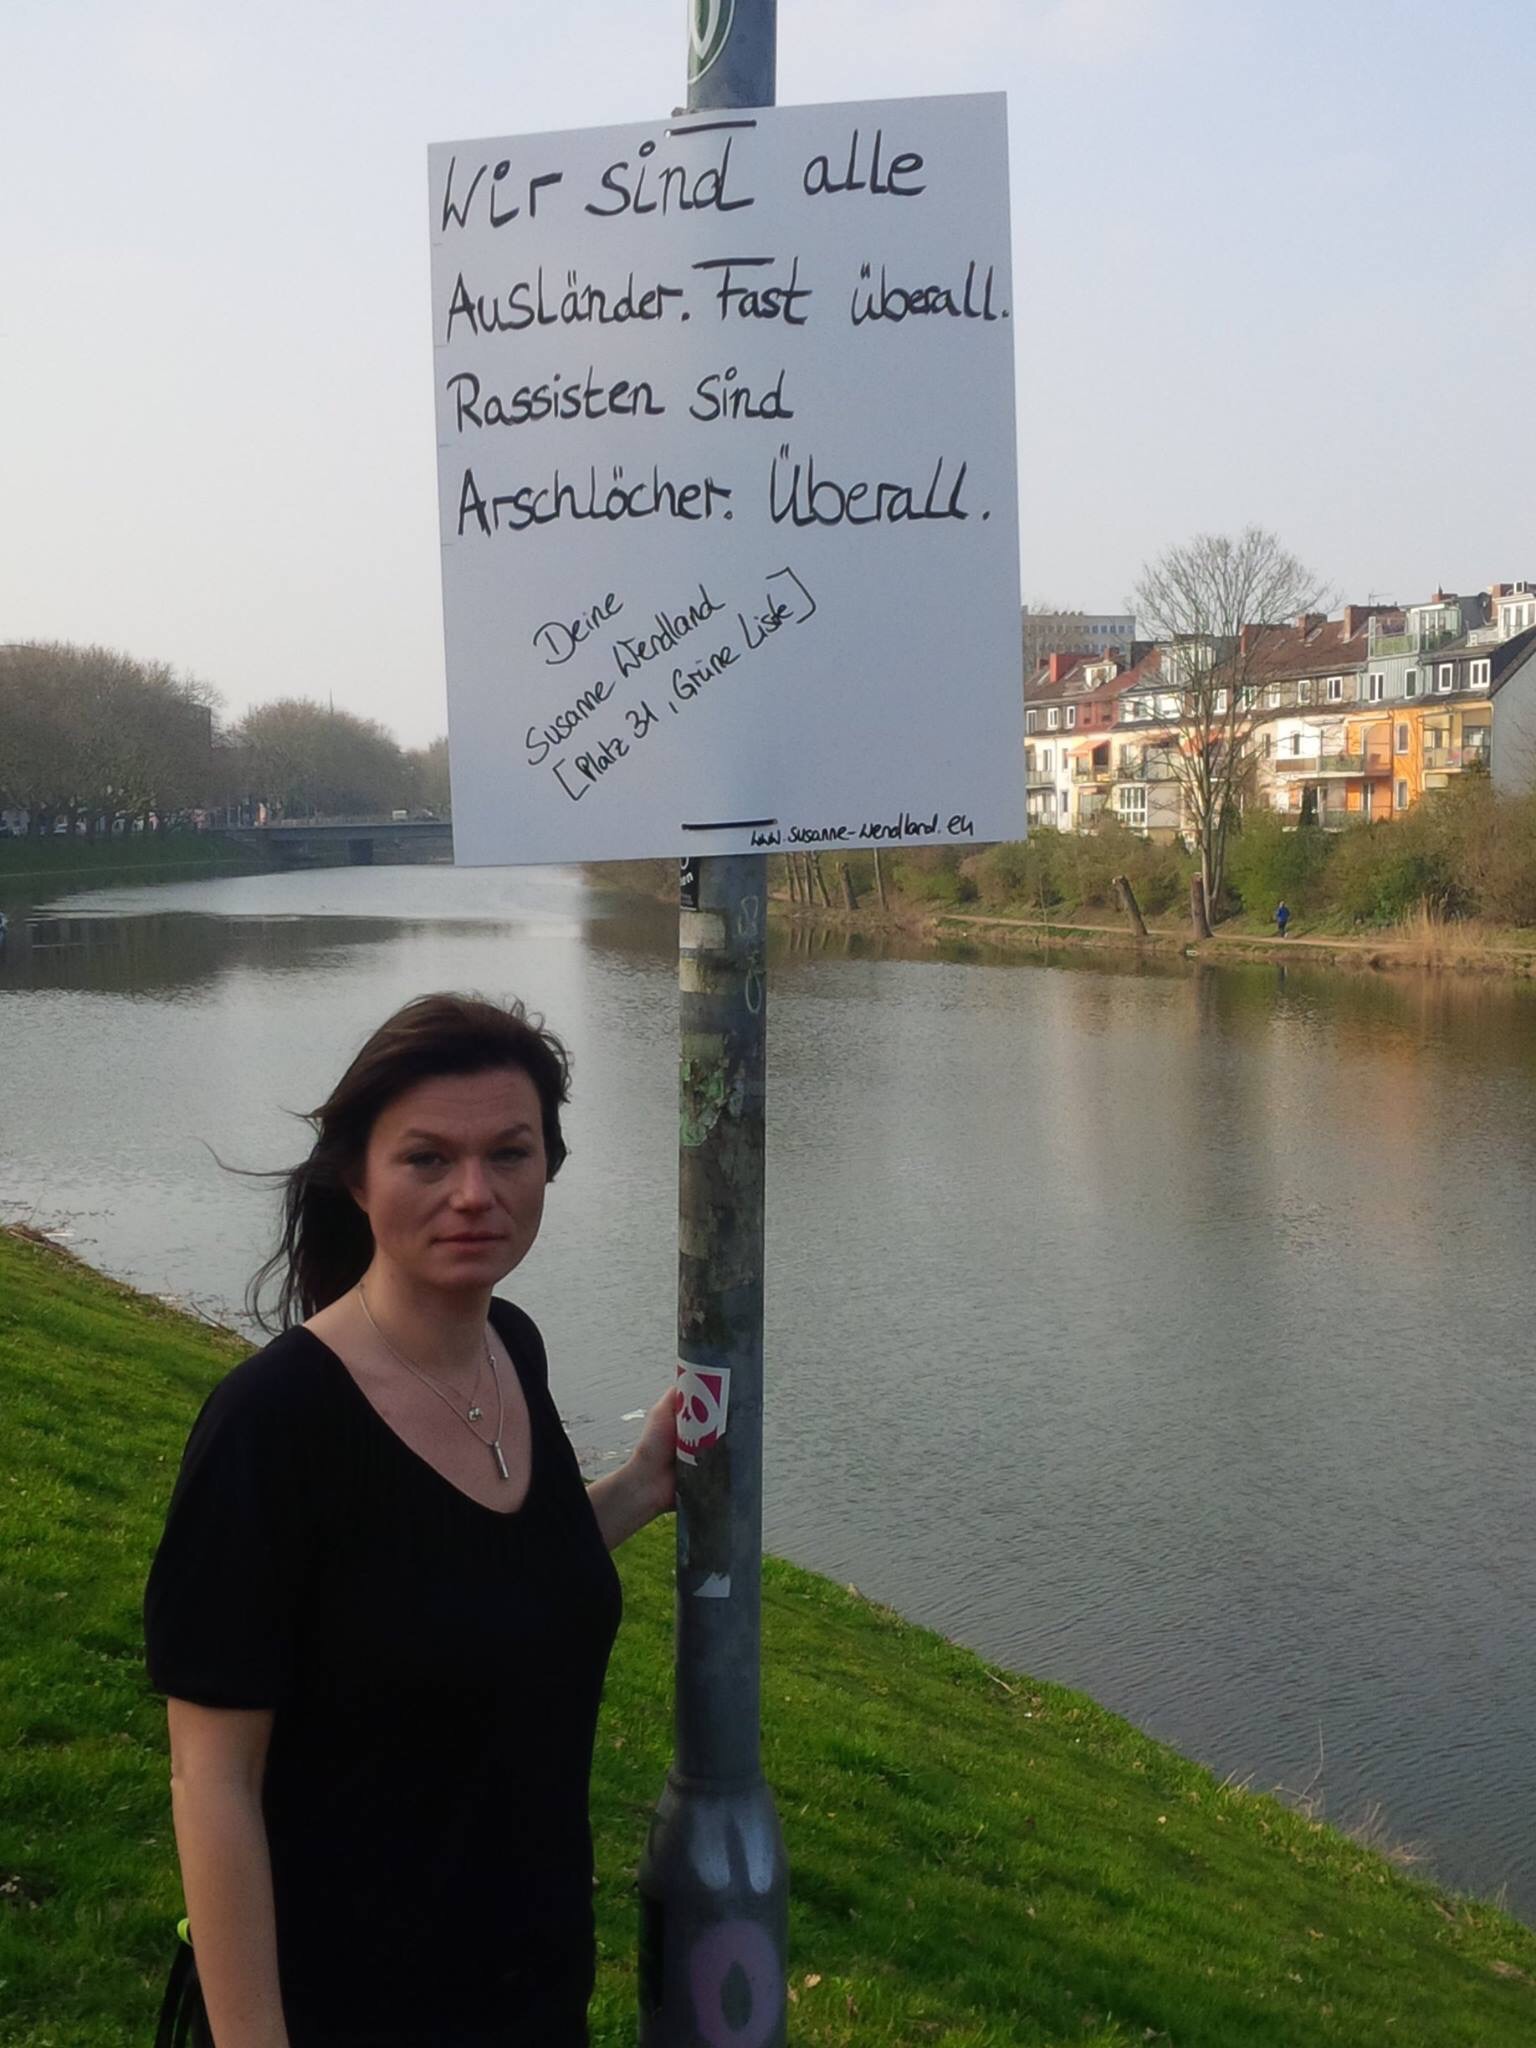 Wir sind alle
Ausländer. Fast überall.
Rassisten sind
Arschlöcher. Überall.
Deine
Susanne Wendland
[Platz 31, Grüne Liste]
www.susanne-wendland.eu